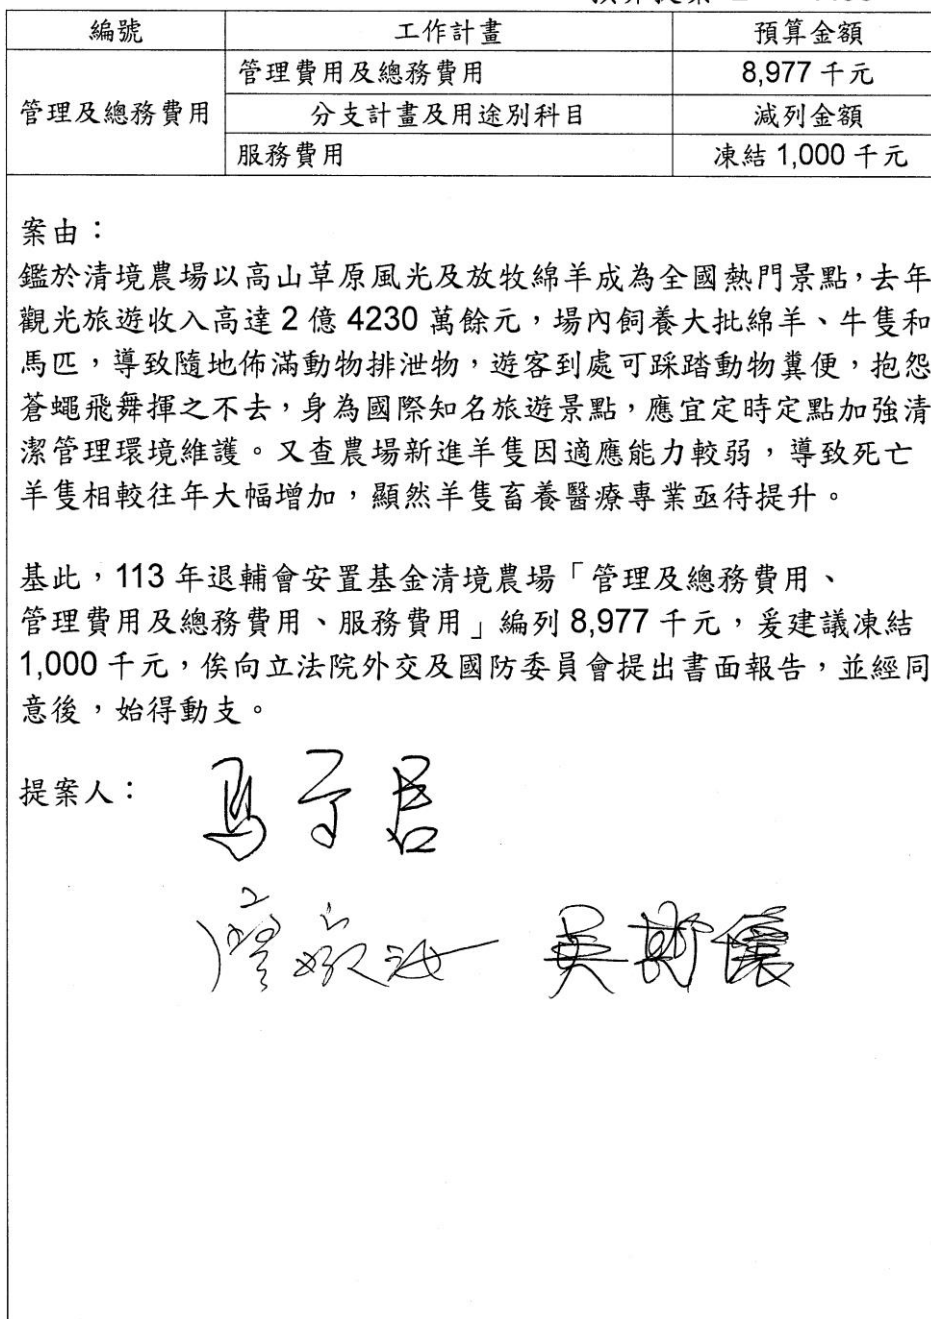 編號 工作計畫 預算金額
管理及總務費用 管理費用及總務費用 8,977 千元
分支計畫及用途別科目 減列金額
服務費用 凍結 1,000 千元
案由：
鑑於清境農場以高山草原風光及放牧綿羊成為全國熱門景點，去年
觀光旅遊收入高達 2 億 4230 萬餘元，場內飼養大批綿羊、牛隻和
馬匹，導致隨地佈滿動物排泄物，遊客到處可踩踏動物糞便，抱怨
蒼蠅飛舞揮之不去，身為國際知名旅遊景點，應宜定時定點加強清
潔管理環境維護。又查農場新進羊隻因適應能力較弱，導致死亡
羊隻相較往年大幅增加，顯然羊隻畜養醫療專業亟待提升。
基此，113 年退輔會安置基金清境農場「管理及總務費用、
管理費用及總務費用、服務費用」編列 8,977 千元，爰建議凍結
1,000 千元，俟向立法院外交及國防委員會提出書面報告，並經同
意後，始得動支。
提案人：
馬文君
吳斯懷